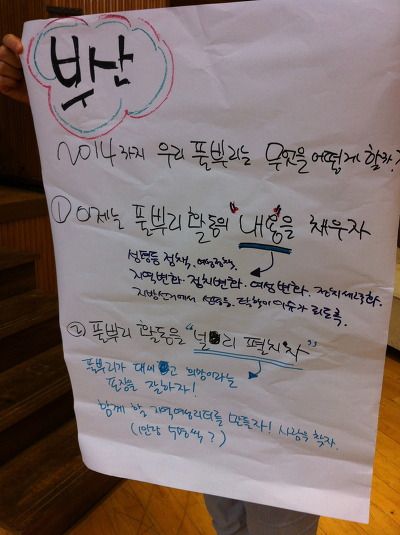 부산
2014까지 우리 풀뿌리는 무엇을 어떻게 할까?
① 이제는 풀뿌리 활동의 "내용"을 채우자
성평등 정책, 여성정책,
지역변화. 정치변화. 여성변화. 정치세력화.
지방선거에서 성평등. 이슈가 되도록.
② 풀뿌리 활동을 "널리 펼치자"
풀뿌리가 대세고 희망이라는
포장을 잘하자!
함께 할 지역여성리더를 만들자! 사람을 찾자.
(1인당 5명씩?)